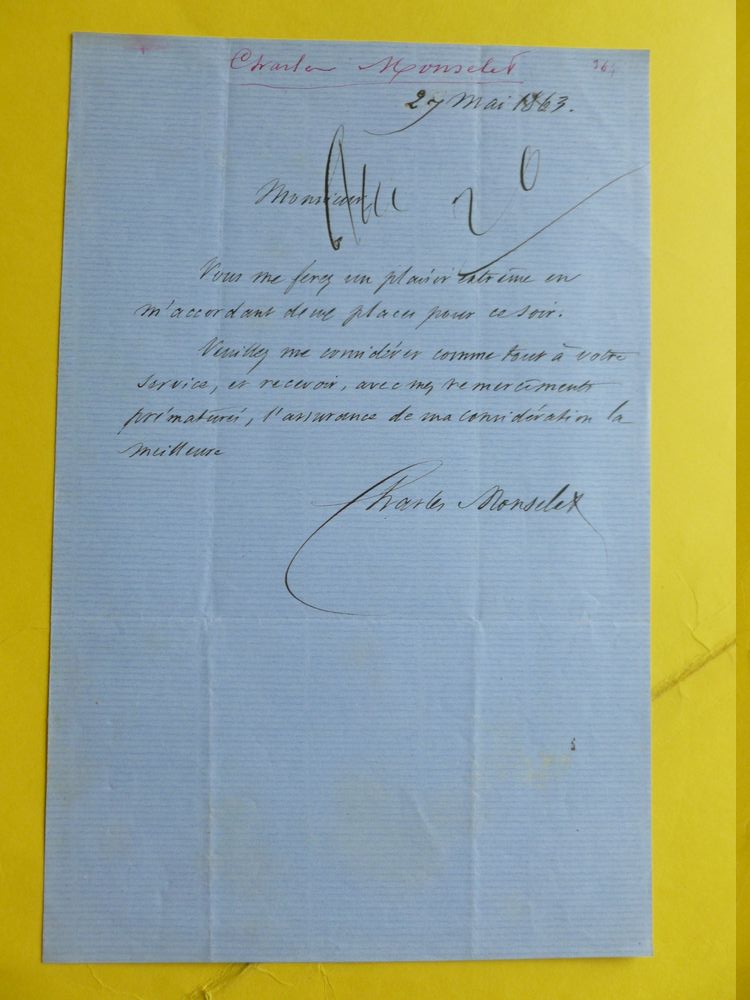 Charles Monselet
364
27 Mai 1863.
Monsieur
Vous me ferez un plaisir extrême en
m'accordant deux places pour ce soir.
Veuillez me considérer comme tout à votre
service, et recevoir, avec mes remerciments
prématurés, l'assurance de ma considération la
meilleure
Charles Monselet